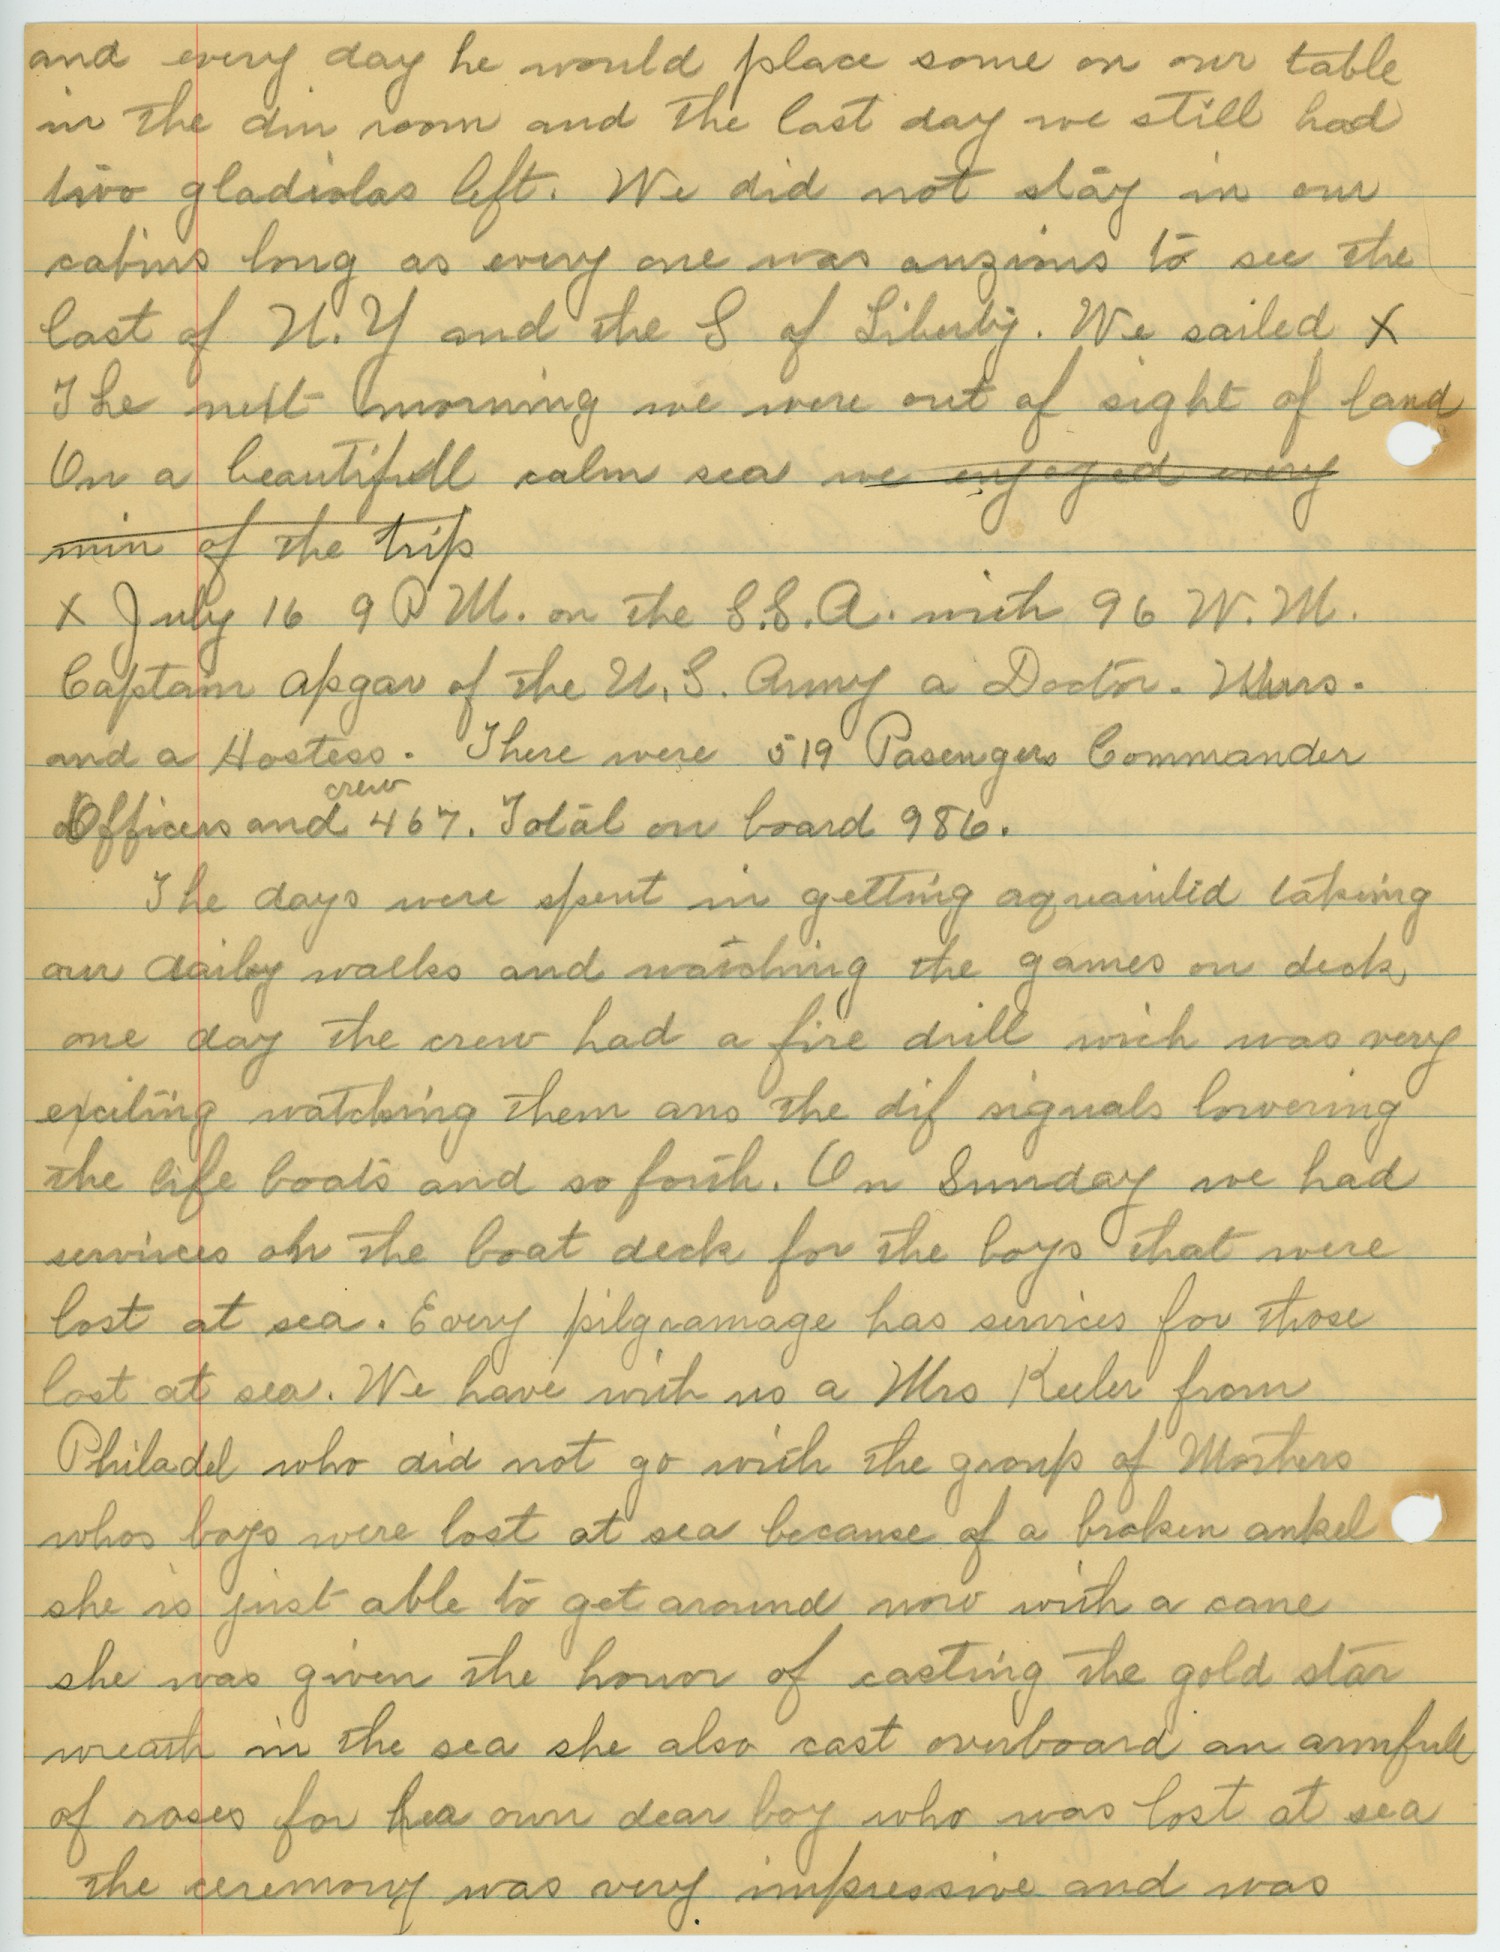 and every day he would place some on our table
in the din room and the last day we still had
two gladiolas left. We did not stay in our
cabins long as every one was anzious to see the
last of N.Y and the S of Liberty. We sailed X
The next morning we were out of sight of land
On a beautifull calm sea we enjoyed every
min of the trip
X July 16 9 P M. on the S.S.A. with 96 W.M.
Captain Apgar of the U.S. Army a Doctor. Nurs.
and a Hostess. There were 519 Pasengers Commander
crew
Officers and 467. Total on board 986.
The days were spent in getting aquainted taking
our daily walks and watching the games on deck,
one day the crew had a fire drill wich was very
exciting watching them ans the dif signals lowering
the life boats and so forth. On Sunday we had
services on the boat deck for the boys that were
lost at sea. Every pilgramage has services for those
lost at sea. We have with us a Mrs Keeler from
Philadel who did not go with the group of Mothers
whos boys were lost at sea because of a broken ankel
she is just able to get around now with a cane
she was given the honor of casting the gold star
wreath in the sea she also cast overboard an armfull
of roses for her own dear boy who was lost at sea
the ceremony was very impressive and was